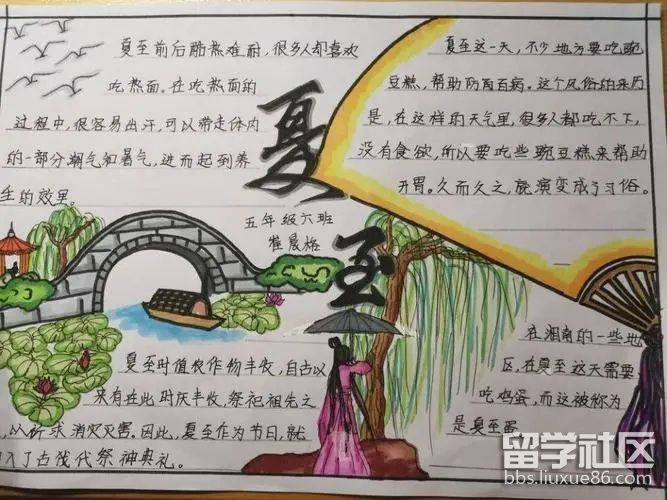 夏至前后酷热难耐,很多人都喜欢
吃热面。在吃热面的
过程中,很容易出汗,可以带走体内
的一部分潮气和暑气,进而起到养
生的效果。
夏至
五年级六班
崔晨格
夏至这一天,不少地方要吃豌
豆糕,帮助防百病。这个风俗的来历
是,在这样的天气里,很多人都吃不下,
没有食欲,所以要吃些豌豆糕来帮助
开胃。久而久之,就演变成了习俗。
夏至时值农作物丰收,自古以
来有在此时庆丰收、祭祀祖先之
,以祈求消灾灾害。因此,夏至作为节日,就
入了古代祭神典礼。
在湘南的一些地
区,在夏至这天需要
吃鸡蛋,而这被称为
是夏至蛋
留学社区
bbs.liuxue86.com